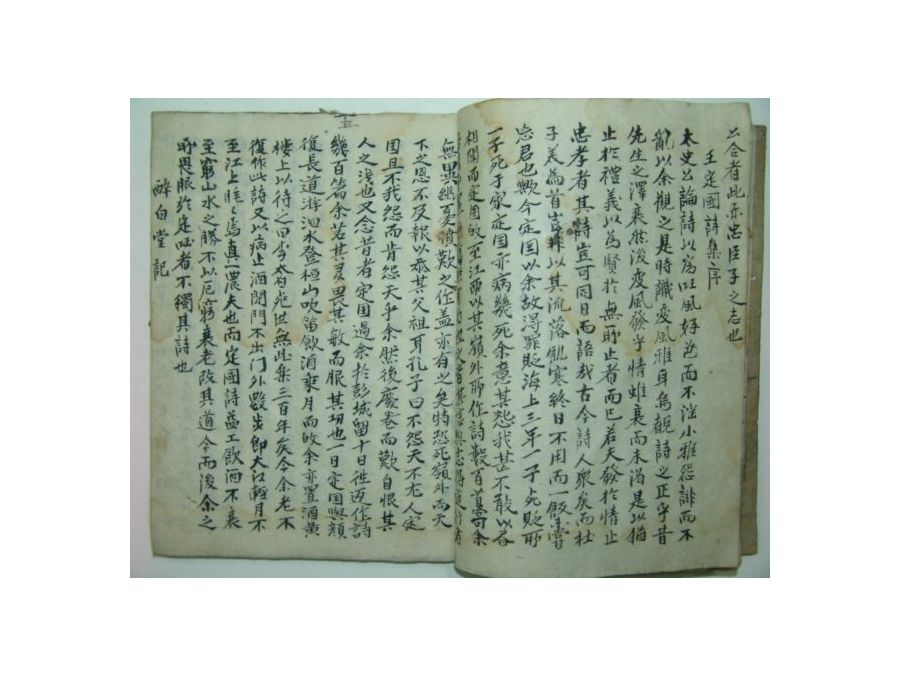 公合者此亦忠臣子之志也
王定國詩集序
太史公論詩以爲國風好色而不淫小雅怨誹而不
亂以余觀之是時識變風雅耳烏覩詩之正乎昔
先生之澤衰然後變風發乎情雖衰而未渴是以猶
止於禮義以爲賢於無所止者而已若夫發於情止
忠孝者其詩豈可同日而語哉古今詩人衆矣而杜
子義爲首豈非以其流落飢寒終日不用而一飯未嘗
忘君也歟今定國以余故得罪貶海上三年一子死貶所
一子死于家定国亦病幾死余意其怨我甚不敢以書
相聞而定国歸至江西以其嶺外所作詩數百首寄余
無異幽憂憤歎之作盖亦有之矣特恐死嶺外而天
下之恩不及報以忝其父祖耳孔子曰不怨天不尤人定
国且不我怨而肯怨天乎余然後廢卷而歎自恨其
人之浅也又念昔者定国過余於彭城留十日徃返作詩
幾百篇余苦其多畏其敏而服其功也一日定国與顔
復長道游泗水登桓山吹笛飮酒乘月而皈余亦置酒黄
樓上以待之曰李太白死世無此樂三百年矣今余老不
復作此詩又以病止酒閉門不出門外數步即大江輕月不
至江上眊〻焉真一農夫也而定國詩益工飮酒不衰
至窮山水之勝不以厄窮衰老改其道今而後余之
所畏服於定国者不獨其詩也
醉白堂記